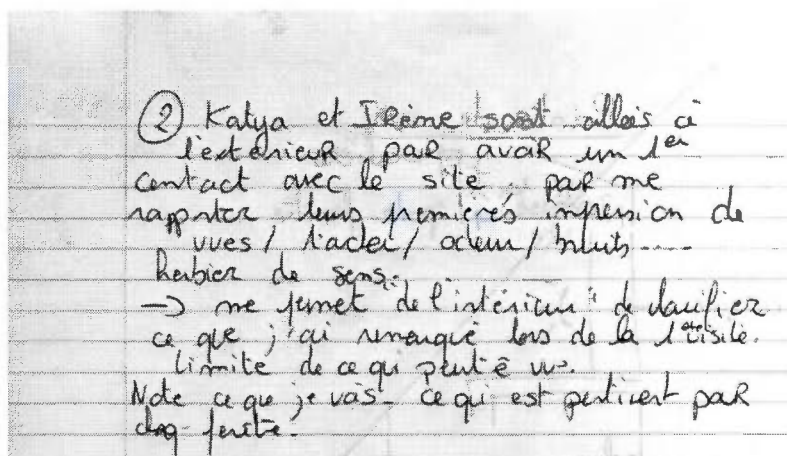 ② Katya et Irène sont allés à
l'extérieur par avoir un 1er
contact avec le site par me
rapporter leurs premières impression de
vues / / odeur / bruits ----
herbier de sens.
→ me permet de l'intérieur de clarifier
ce que j'ai remarqué lors de la 1ère visite.
limite de ce qui peut ê vu.
Note ce que je vois - ce qui est pertinent par